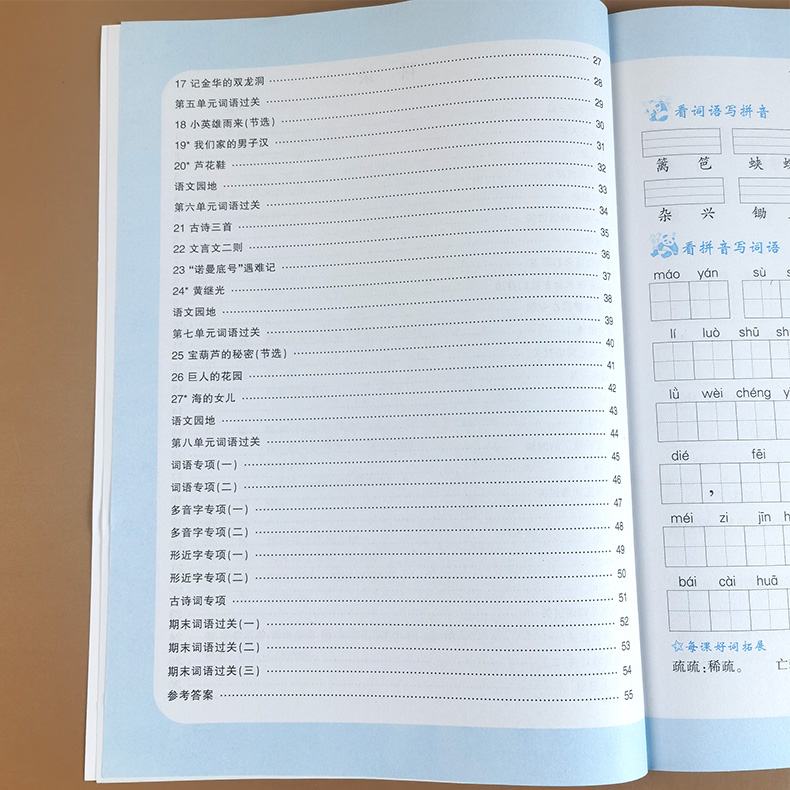 17 记金华的双龙洞 27
第五单元词语过关 28
18 小英雄雨来(节选) 29
19* 我们家的男子汉 30
20* 芦花鞋 31
语文园地 32
第六单元词语过关 33
21 古诗三首 34
22 文言文二则 35
23 “诺曼底号”遇难记 36
24* 黄继光 37
语文园地 38
第七单元词语过关 39
25 宝葫芦的秘密(节选) 40
26 巨人的花园 41
27* 海的女儿 42
语文园地 43
第八单元词语过关 44
词语专项(一) 45
词语专项(二) 46
多音字专项(一) 47
多音字专项(二) 48
形近字专项(一) 49
形近字专项(二) 50
古诗词专项 51
期末词语过关(一) 52
期末词语过关(二) 53
期末词语过关(三) 54
参考答案 55
看词语写拼音
篱 笆 蛱
杂 兴 锄
看拼音写词语
máo yán sù
lí luò shū
lǜ wèi chéng
dié fēi
,
méi zi jīn
bái cài huā
☆每课好词拓展
疏疏:稀疏。 亡